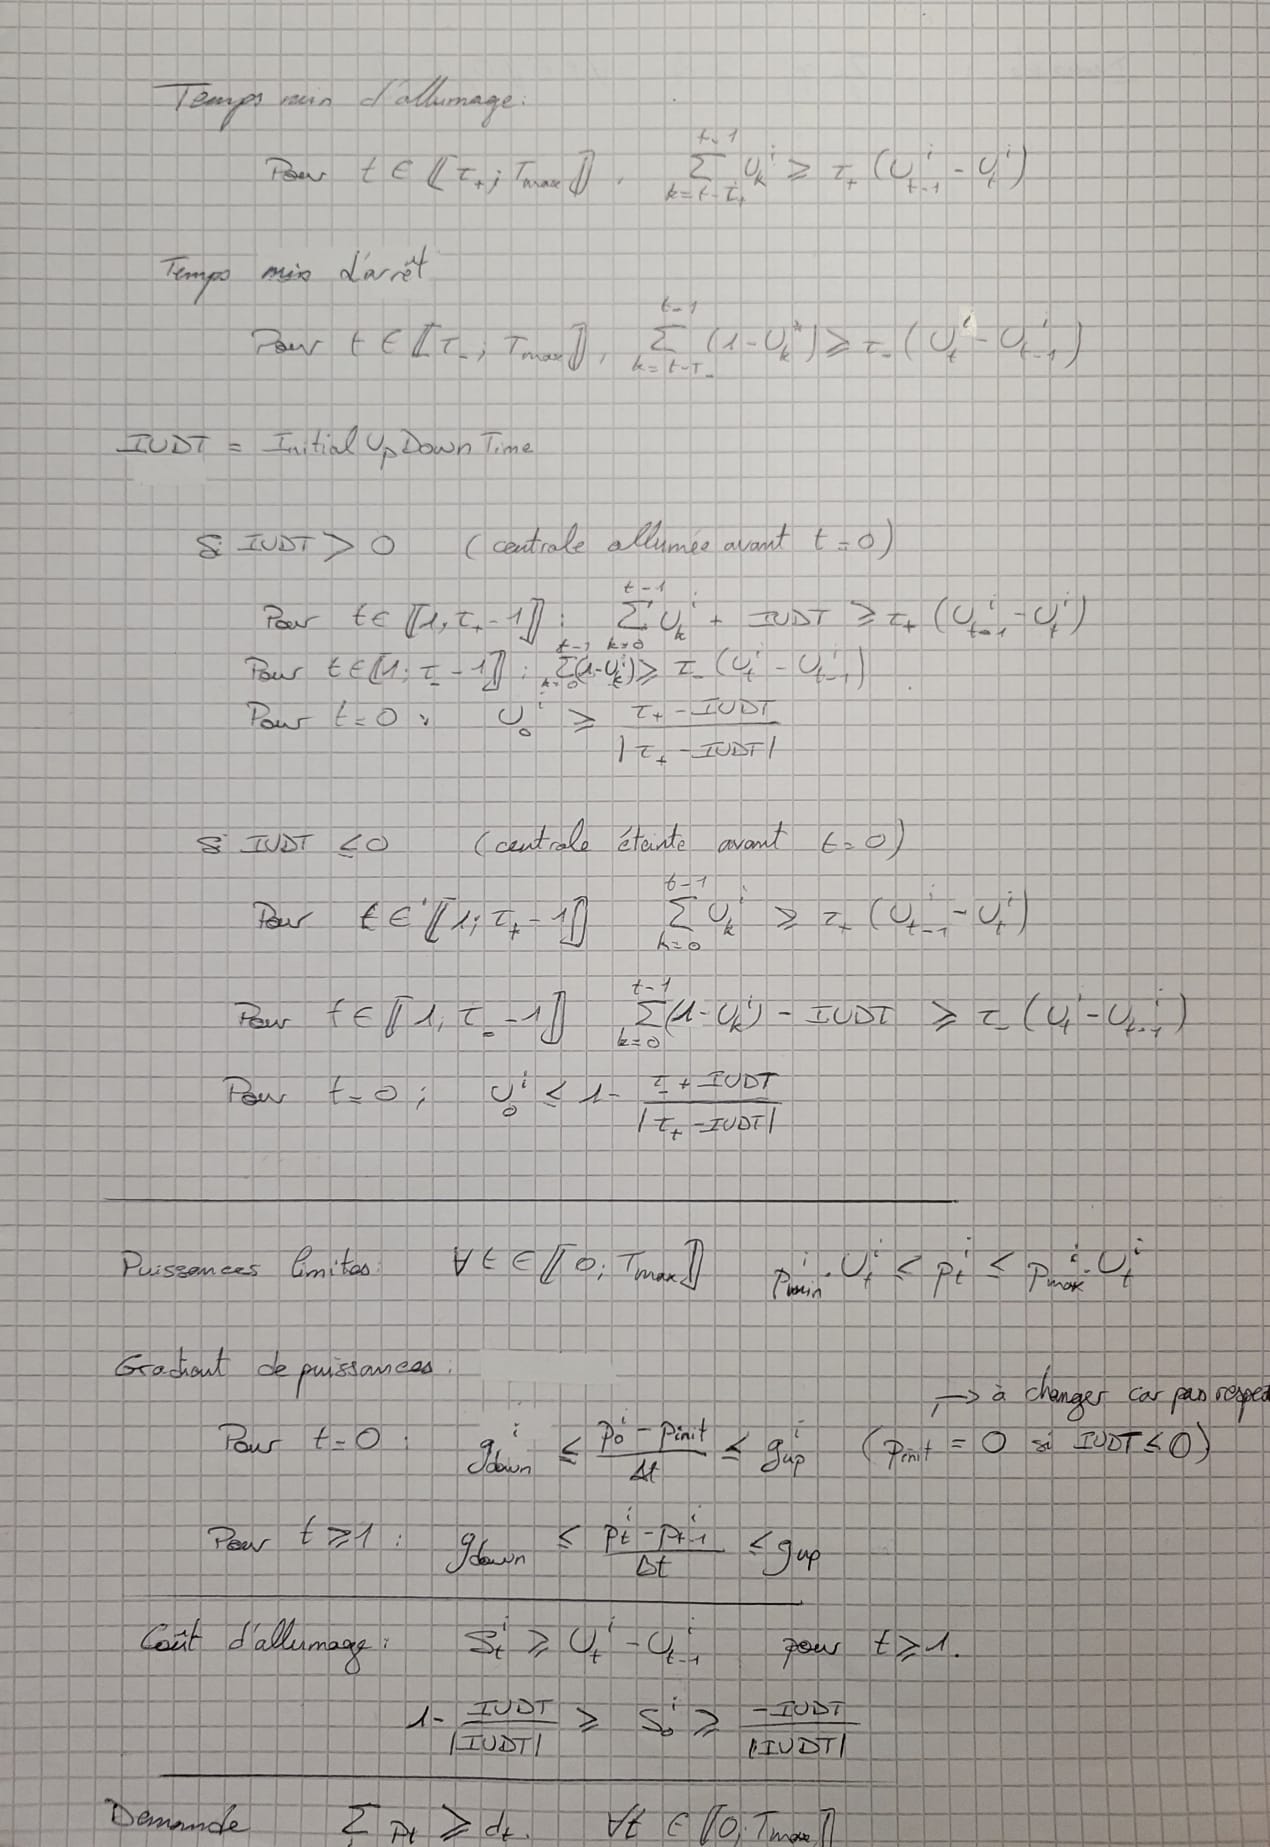 Temps min d'allumage:
Pour t ∈ ⟦τ₊; Tmax⟧, ∑_{k=t-τ₊}^{t-1} U_k^i ⩾ τ₊ (U_{t-1}^i - U_t^i)
Temps min d'arrêt
Pour t ∈ ⟦τ₋; Tmax⟧, ∑_{k=t-τ₋}^{t-1} (1-U_k^i) ⩾ τ₋ (U_t^i - U_{t-1}^i)
IUDT = Initial Up Down Time
Si IUDT > 0 (centrale allumée avant t=0)
Pour t ∈ ⟦1, τ₊-1⟧ : ∑_{k=0}^{t-1} U_k^i + IUDT ⩾ τ₊ (U_{t-1}^i - U_t^i)
Pour t ∈ ⟦1; τ₋-1⟧ : ∑_{k=0}^{t-1} (1-U_k^i) ⩾ τ₋ (U_t^i - U_{t-1}^i)
Pour t=0 : U_0^i ⩾ (τ₊ - IUDT) / |τ₊ - IUDT|
Si IUDT ⩽ 0 (centrale éteinte avant t=0)
Pour t ∈ ⟦1; τ₊-1⟧ ∑_{k=0}^{t-1} U_k^i ⩾ τ₊ (U_{t-1}^i - U_t^i)
Pour t ∈ ⟦1, τ₋-1⟧ ∑_{k=0}^{t-1} (1-U_k^i) - IUDT ⩾ τ₋ (U_t^i - U_{t-1}^i)
Pour t=0 ; U_0^i ⩽ 1 - (τ₋ + IUDT) / |τ₊ - IUDT|
Puissances limites: ∀t ∈ ⟦0; Tmax⟧ p_min^i . U_t^i ⩽ p_t^i ⩽ p_max^i . U_t^i
Gradient de puissances:
→ à changer car pas respect
Pour t=0 : g_down^i ⩽ (p_0^i - p_init) / Δt ⩽ g_up^i (p_init = 0 si IUDT ⩽ 0)
Pour t ⩾ 1 : g_down ⩽ (p_t^i - p_{t-1}^i) / Δt ⩽ g_up
Coût d'allumage: S_t^i ⩾ U_t^i - U_{t-1}^i pour t ⩾ 1.
1 - IUDT / |IUDT| ⩾ S_0^i ⩾ -IUDT / |IUDT|
Demande ∑ p_t ⩾ d_t. ∀t ∈ ⟦0; Tmax⟧